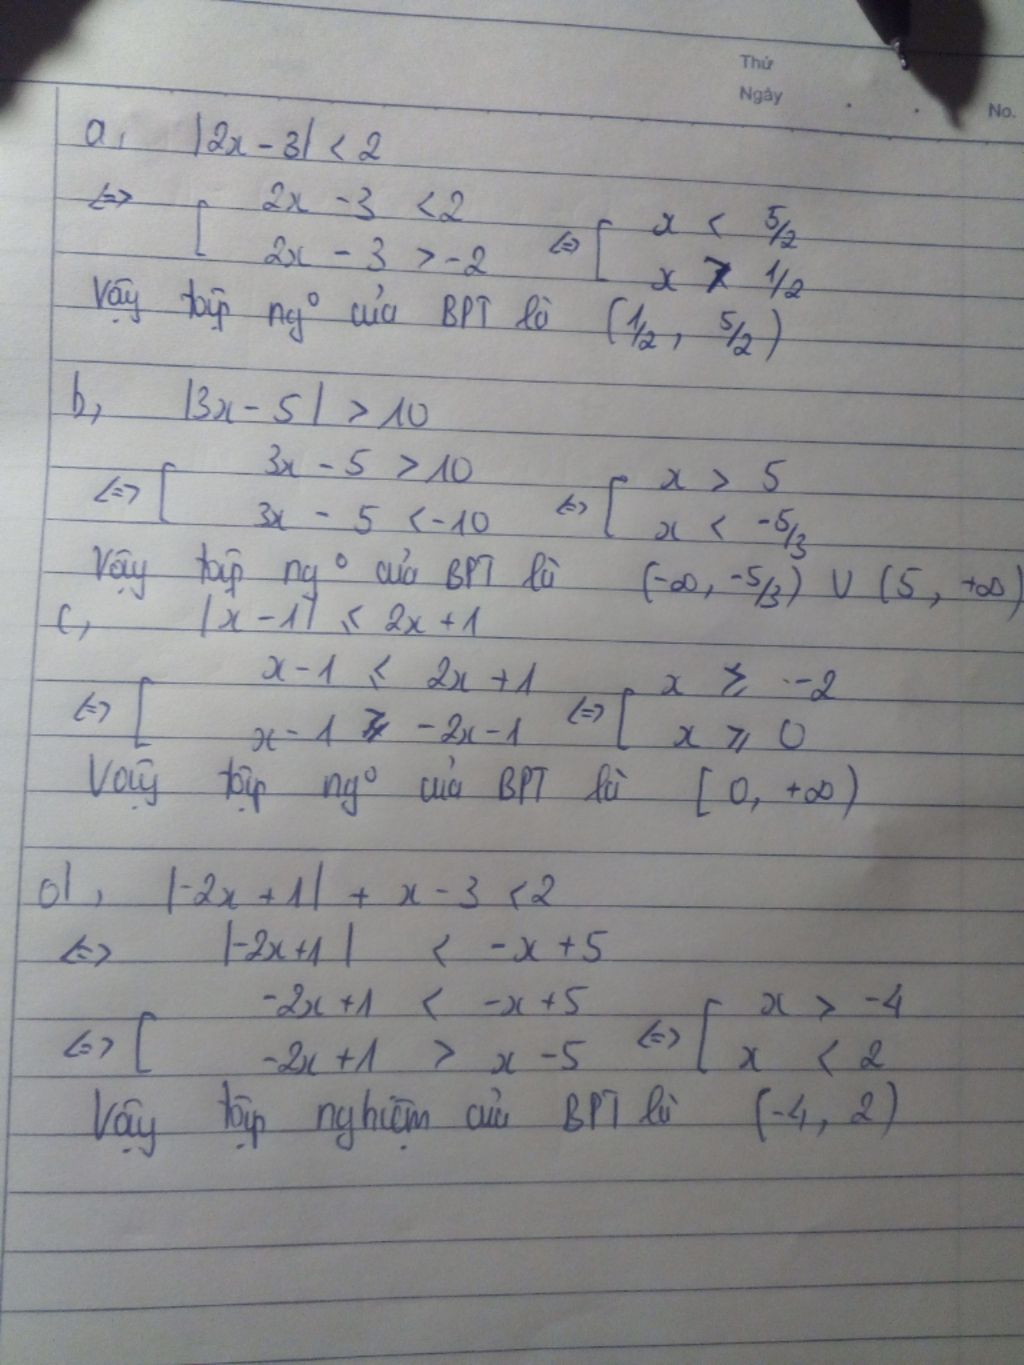 Thứ
Ngày
No.
a, |2x - 3| < 2
<=> [ 2x - 3 < 2 <=> [ x < 5/2
2x - 3 > -2 x > 1/2
Vậy tập ngº của BPT là (1/2, 5/2)
b, |3x - 5| > 10
<=> [ 3x - 5 > 10 <=> [ x > 5
3x - 5 < -10 x < -5/3
Vậy tập ngº của BPT là (-∞, -5/3) ∪ (5, +∞)
c, |x - 1| ⩽ 2x + 1
<=> [ x - 1 ⩽ 2x + 1 <=> [ x ⩾ -2
x - 1 ⩾ -2x - 1 x ⩾ 0
Vậy tập ngº của BPT là [0, +∞)
d, |-2x + 1| + x - 3 < 2
<=> |-2x + 1| < -x + 5
<=> [ -2x + 1 < -x + 5 <=> [ x > -4
-2x + 1 > x - 5 x < 2
Vậy tập nghiệm của BPT là (-4, 2)